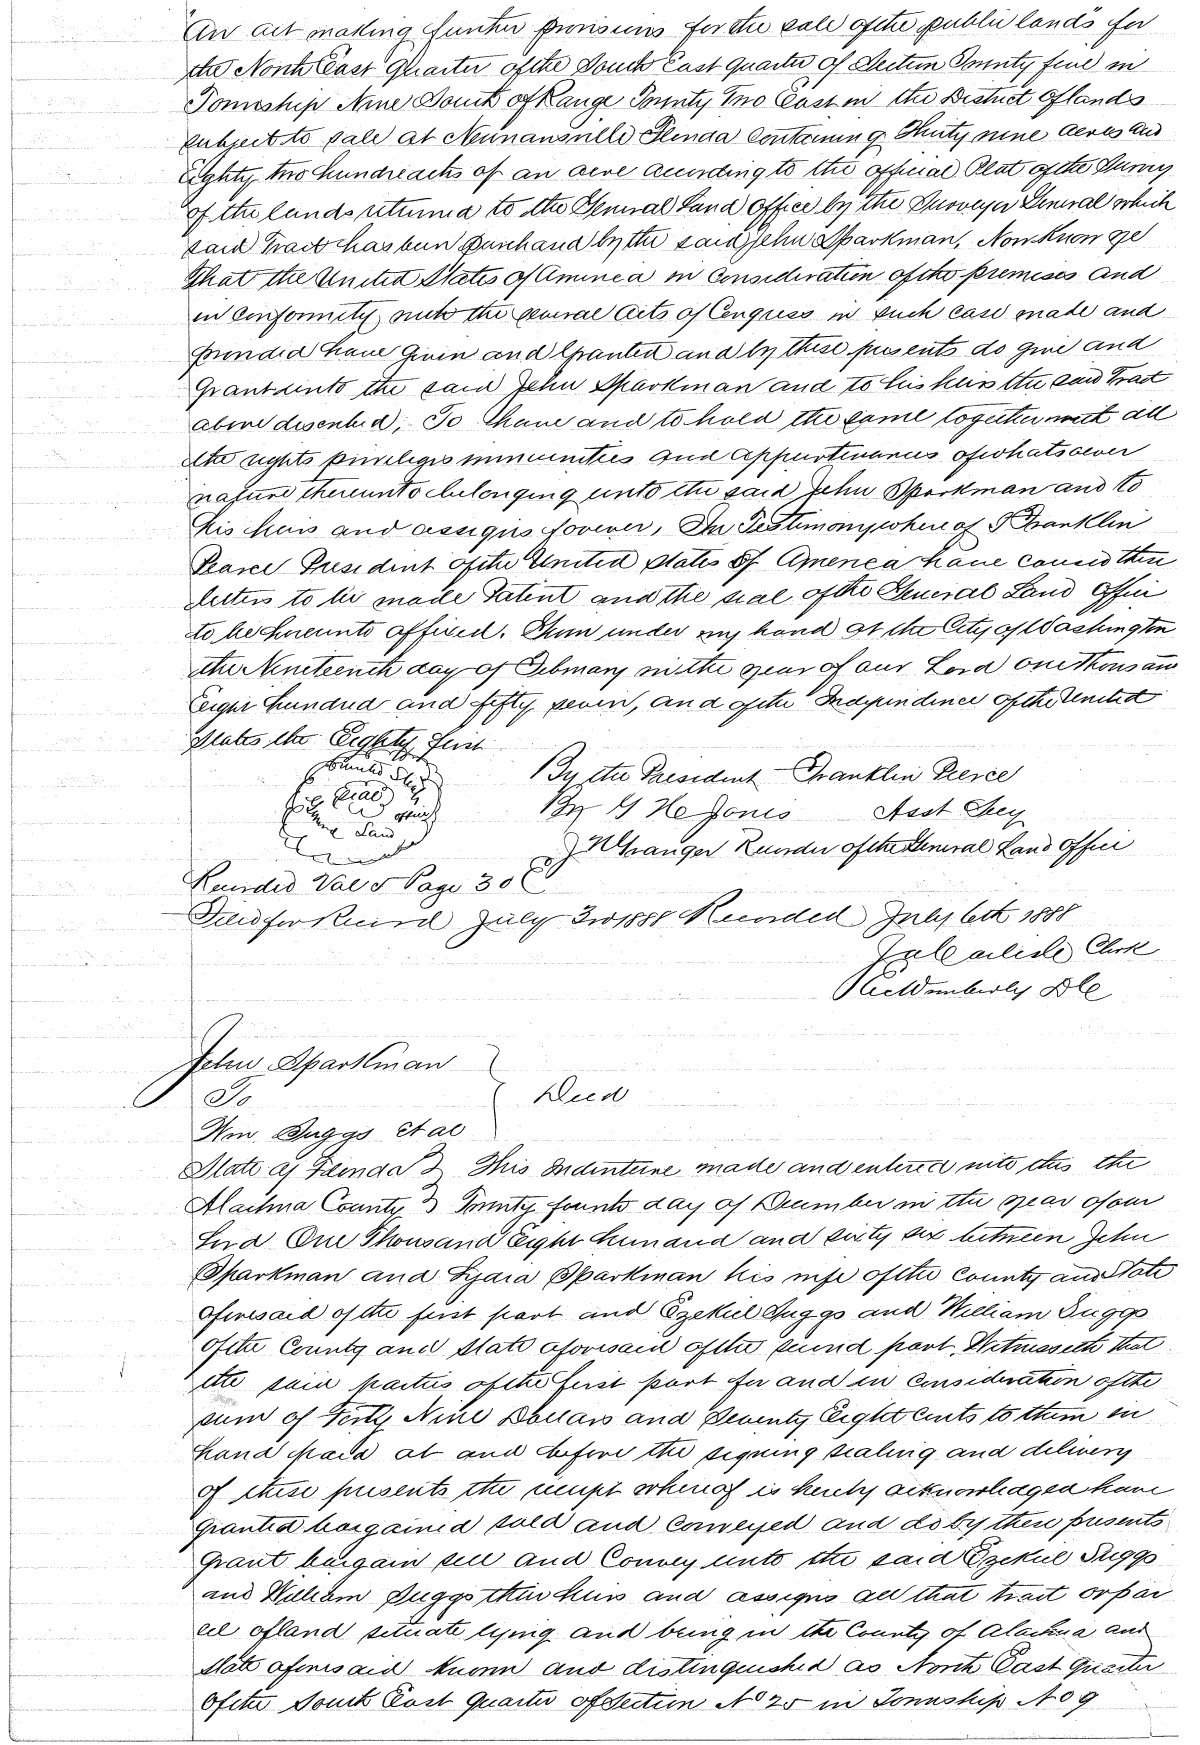 An act making further provisions for the sale of the public lands" for
the North East Quarter of the South East Quarter of Section Twenty five in
Township Nine South of Range Twenty Two East in the District of lands
subject to sale at Newnansville Florida containing Thirty nine acres and
Eighty two hundredths of an acre according to the official Plat of the Survey
of the lands returned to the General Land Office by the Surveyor General which
said Tract has been purchased by the said John Sparkman, Now Know ye
that the United States of America in consideration of the premises and
in conformity with the several acts of Congress in such case made and
provided have Given and Granted and by these presents do give and
Grant unto the said John Sparkman and to his heirs the said Tract
above described; To have and to hold the same together with all
the rights privileges immunities and appurtenances of whatsoever
nature thereunto belonging unto the said John Sparkman and to
his heirs and assigns forever, In Testimony whereof I Franklin
Pearce President of the United States of America have caused these
letters to be made Patent and the seal of the General Land Office
to be hereunto affixed. Given under my hand at the City of Washington
the Nineteenth day of February in the year of our Lord one Thousand
Eight hundred and fifty seven, and of the Independence of the United
States the Eighty first
United States Seal Land Office
By the President Franklin Pierce
By G H Jones Asst Secy
J N Granger Recorder of the General Land Office
Recorded Vol 5 Page 306
Filed for Record July 3rd 1888 Recorded July 6th 1888
J A Carlisle Clerk
Wimberly D C
John Sparkman
To Deed
Wm Suggs et al
State of Florida } This Indenture made and entered into this the
Alachua County } Twenty fourth day of December in the year of our
Lord One Thousand Eight hundred and sixty six between John
Sparkman and Lydia Sparkman his wife of the County and State
aforesaid of the first part and Ezekiel Suggs and William Suggs
of the County and State aforesaid of the second part. Witnesseth that
the said parties of the first part for and in consideration of the
sum of Forty Nine Dollars and Seventy Eight cents to them in
hand paid at and before the signing sealing and delivery
of these presents the receipt whereof is hereby acknowledged have
granted bargained sold and conveyed and do by these presents
grant bargain sell and Convey unto the said Ezekiel Suggs
and William Suggs their heirs and assigns all that tract or par
cel of land situate lying and being in the County of Alachua and
State aforesaid known and distinguished as North East Quarter
of the South East Quarter of Section No 25 in Township No 9